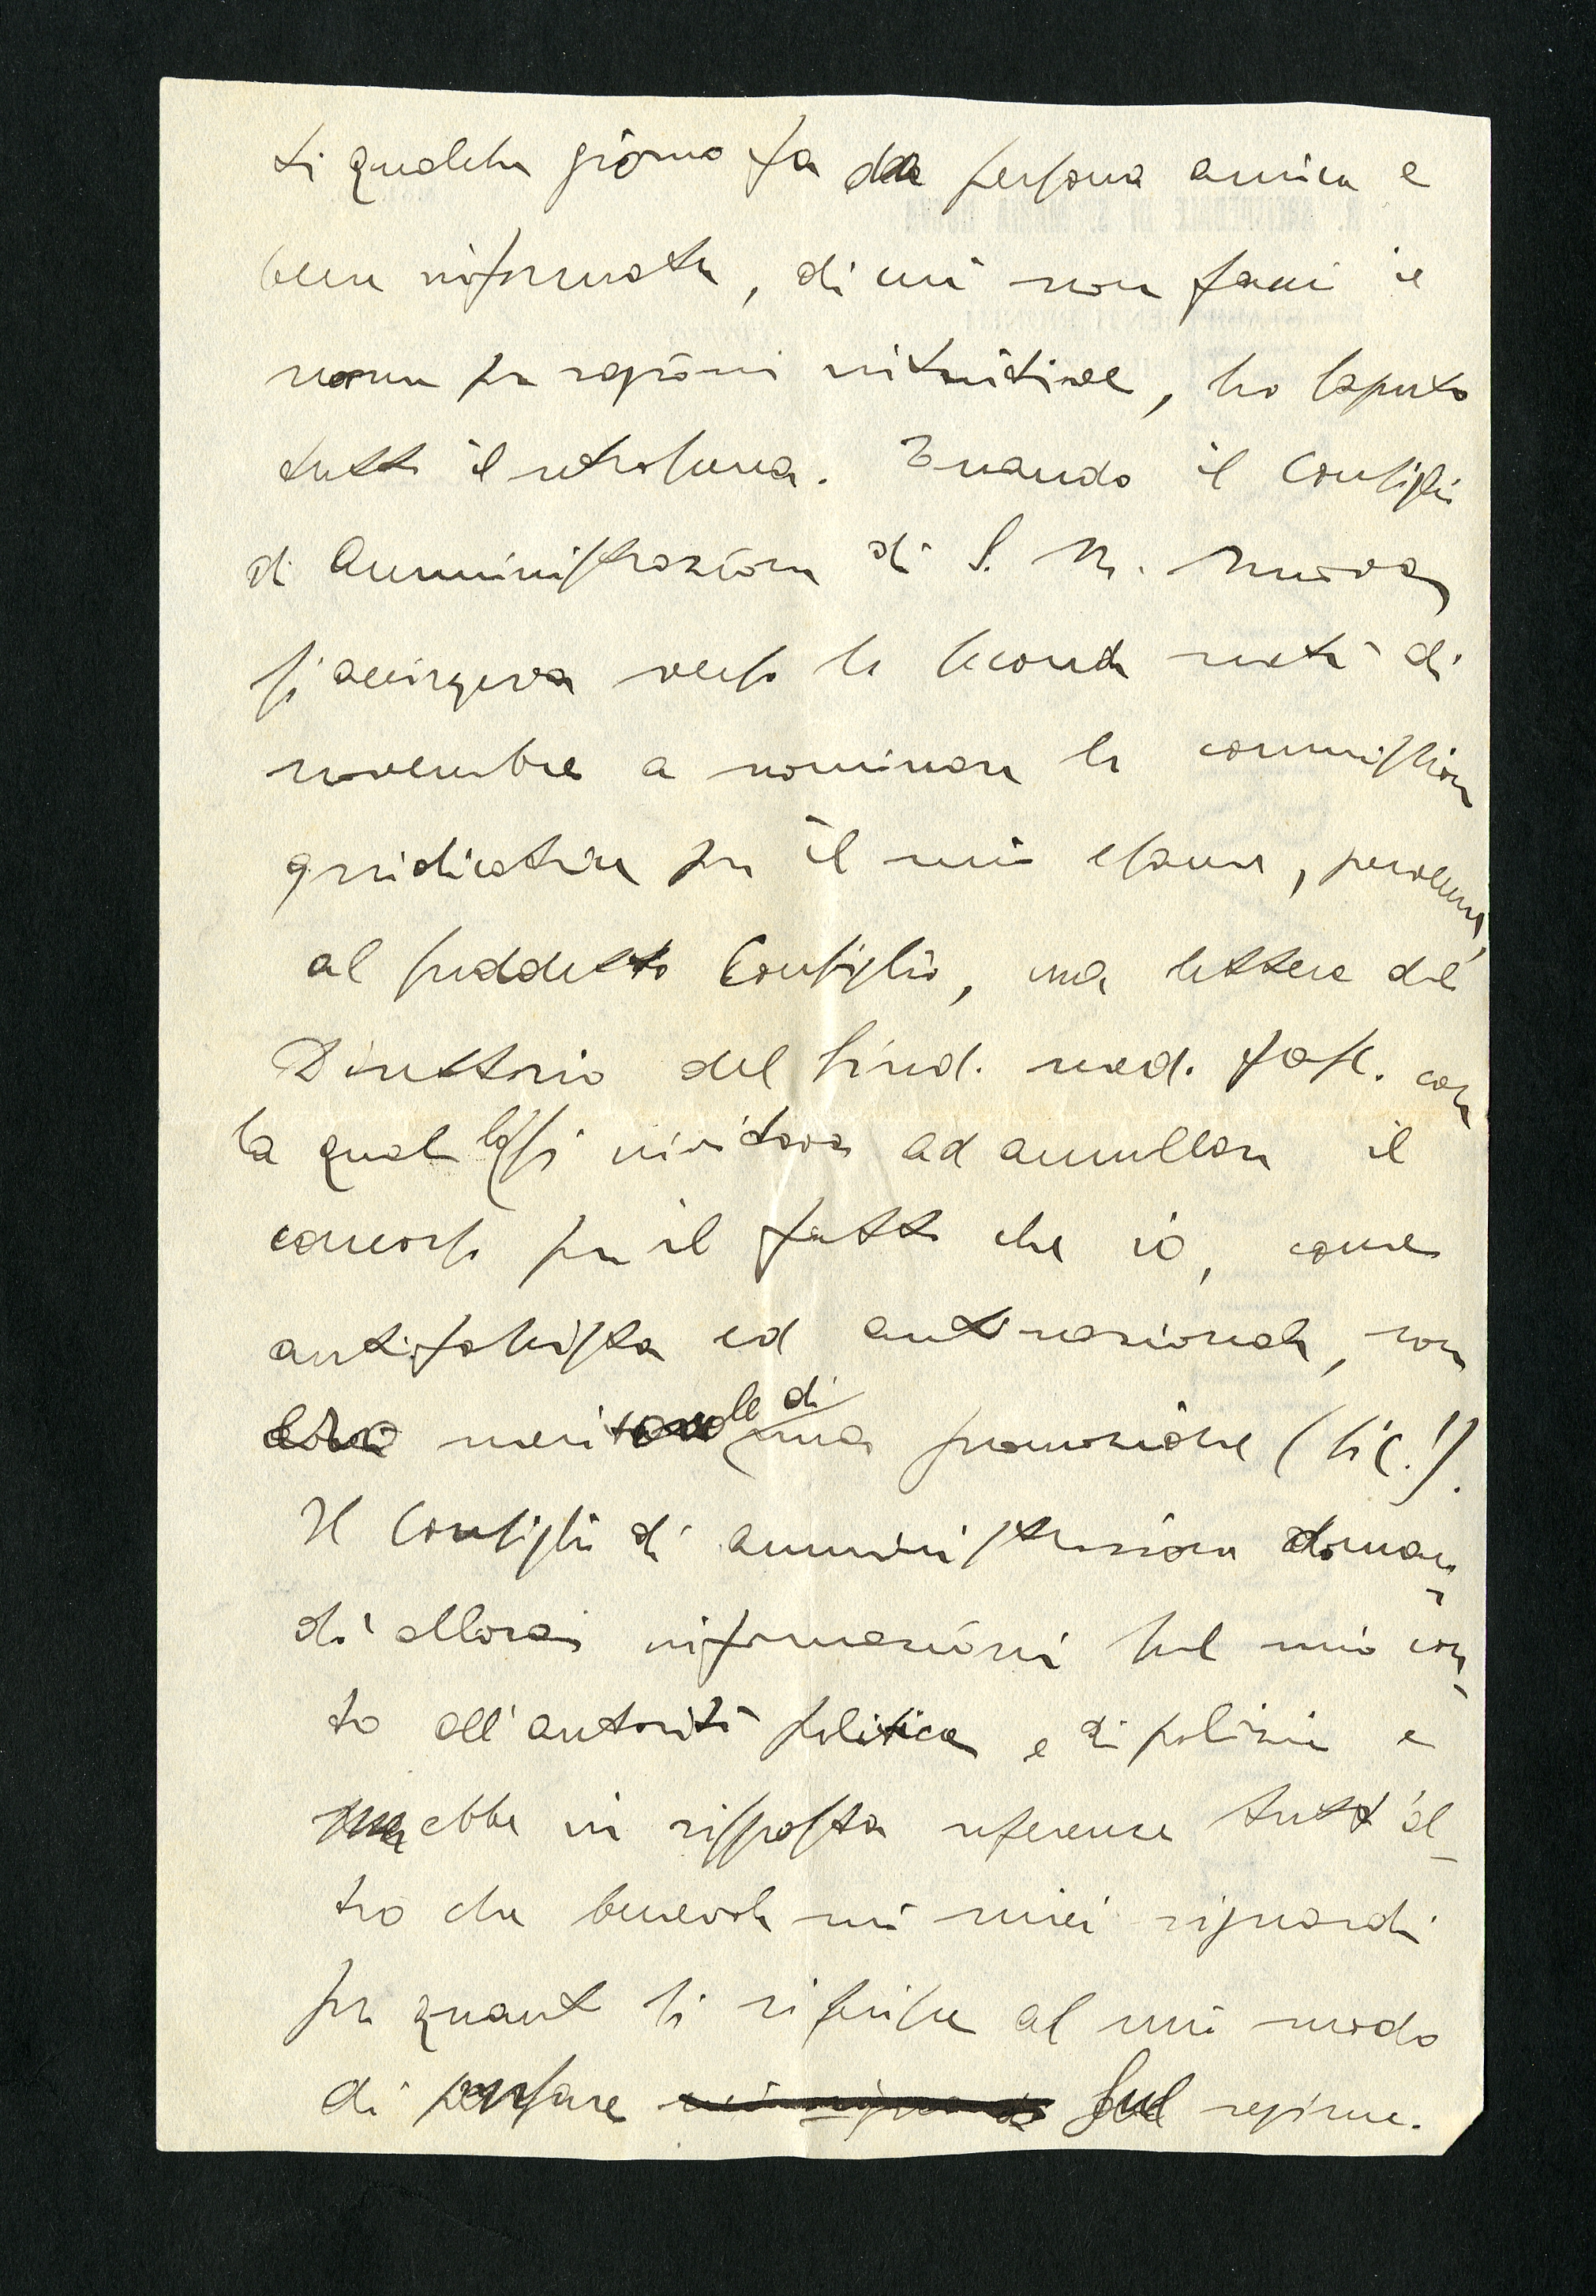 ti qualche giorno fa da persona amica e
bene informata, di cui non faccio il
nome per ragioni intuitive, ho saputo
tutto il retroscena. Quando il Consiglio
di Amministrazione di S. M. Nuova
si accingeva verso la seconda metà di
novembre a nominare la commissione
giudicatrice per il mio esame, pervenne,
al suddetto Consiglio, una lettera del
Direttorio del Sind. med. fasc. con
la quale lo si invitava ad annullare il
concorso per il fatto che io, come
antifascista ed antinazionale, non
ero meritevole di una promozione (sic!).
Il Consiglio di amministrazione doman-
dò allora informazioni sul mio con-
to all'autorità politica e di polizia e
ebbe in risposta referenze tutt'al-
tro che benevole nei miei riguardi
per quanto si riferisce al mio modo
di pensare sul regime.